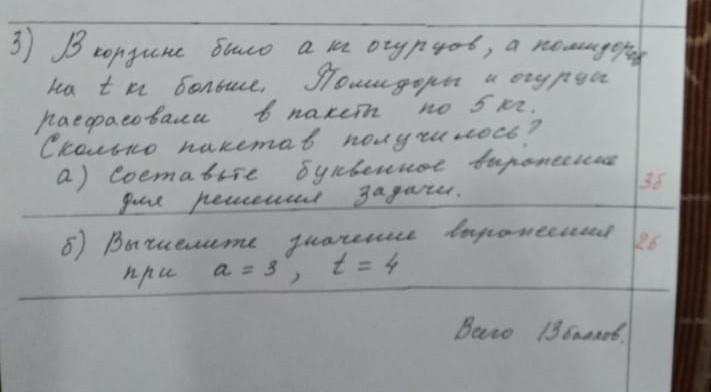 3) В корзине было a кг огурцов, а помидоров
на t кг больше. Помидоры и огурцы
расфасовали в пакеты по 5 кг.
Сколько пакетов получилось?
а) Составьте буквенное выражение
для решения задачи.
3б
б) Вычислите значение выражения
при a = 3, t = 4
2б
Всего 13 баллов.